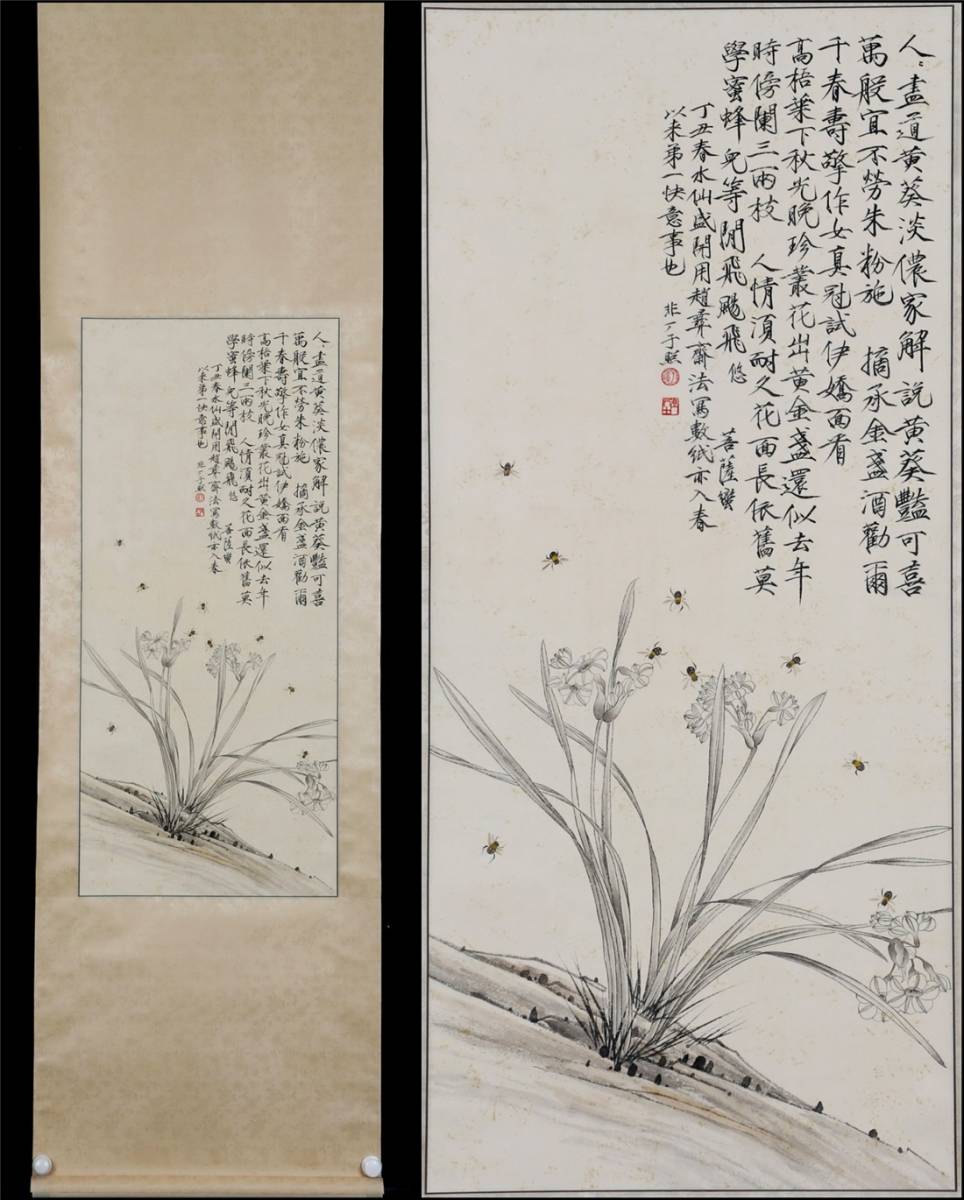 人〻盡道黃葵淡儂家解說黃葵豔可喜
萬般宜不勞朱粉施 摘承金盞酒勸爾
千春壽擎作女真冠試伊嬌面看
高梧葉下秋光晚珍叢花出黃金盞還似去年
時傍闌三兩枝 人情須耐久花面長依舊莫
學蜜蜂兒等閒飛颺飛 悠 菩薩蠻
丁丑春水仙盛開用趙彝齋法寫數紙亦入春
以來第一快意事也 非厂于照
人〻盡道黃葵淡儂家解說黃葵豔可喜
萬般宜不勞朱粉施 摘承金盞酒勸爾
千春壽擎作女真冠試伊嬌面看
高梧葉下秋光晚珍叢花出黃金盞還似去年
時傍闌三兩枝 人情須耐久花面長依舊莫
學蜜蜂兒等閒飛颺飛 悠 菩薩蠻
丁丑春水仙盛開用趙彝齋法寫數紙亦入春
以來第一快意事也 非厂于照